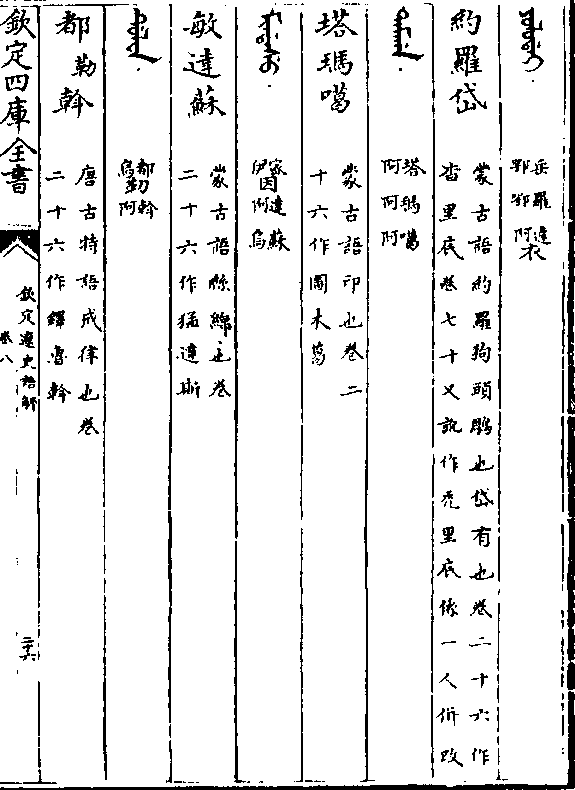 岳羅達衣
鄂鄂阿
約羅岱
蒙古語約羅狗頭鵰也岱有也卷二十六作
杳里底卷七十又訛作兖里底係一人併改
塔瑪噶
阿阿阿
塔瑪噶
蒙古語印也卷二
十六作圖木葛
密達蘇
伊因阿烏
敏達蘇
蒙古語絲綿也卷
二十六作猛達斯
都勒幹
烏阿
都勒幹
唐古特語戒律也卷
二十六作鐸魯斡
欽定四庫全書
欽定遼史語解
卷八
二六